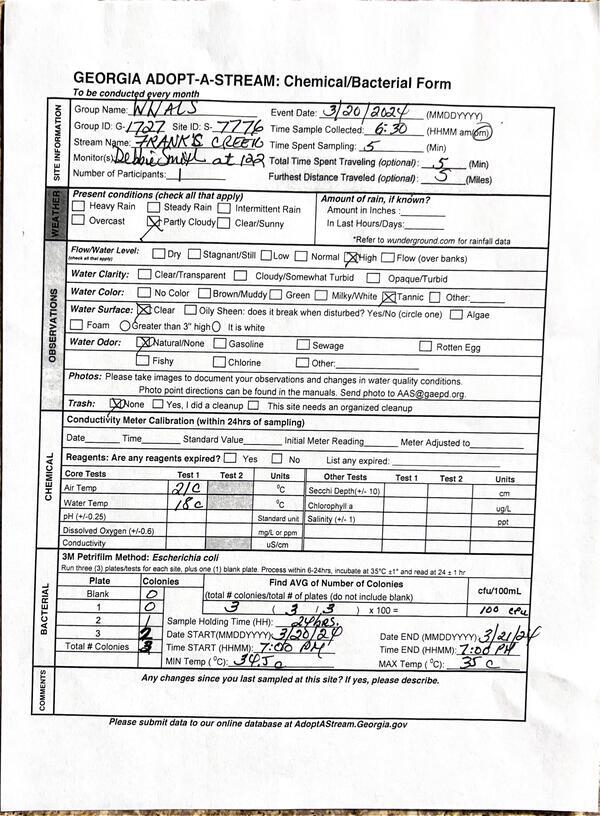 GEORGIA ADOPT-A-STREAM: Chemical/Bacterial Form
To be conducted every month
SITE INFORMATION
Group Name: WWALS Event Date: 3/20/2024 (MMDDYYYY)
Group ID: G-1727 Site ID: S-7776 Time Sample Collected: 6:30 (HHMM am/pm)
Stream Name: FRANK'S CREEK Time Spent Sampling: 5 (Min)
Monitor(s) Debbie at 122 Total Time Spent Traveling (optional): 5 (Min)
Number of Participants: 1 Furthest Distance Traveled (optional): 5 (Miles)
WEATHER
Present conditions (check all that apply) Amount of rain, if known?
Heavy Rain Steady Rain Intermittent Rain Amount in Inches:
Overcast Partly Cloudy Clear/Sunny In Last Hours/Days:
*Refer to wunderground.com for rainfall data
OBSERVATIONS
Flow/Water Level: Dry Stagnant/Still Low Normal High Flow (over banks)
(check all that apply)
Water Clarity: Clear/Transparent Cloudy/Somewhat Turbid Opaque/Turbid
Water Color: No Color Brown/Muddy Green Milky/White Tannic Other:
Water Surface: Clear Oily Sheen: does it break when disturbed? Yes/No (circle one) Algae
Foam Greater than 3" high It is white
Water Odor: Natural/None Gasoline Sewage Rotten Egg
Fishy Chlorine Other:
Photos: Please take images to document your observations and changes in water quality conditions.
Photo point directions can be found in the manuals. Send photo to AAS@gaepd.org.
Trash: None Yes, I did a cleanup This site needs an organized cleanup
CHEMICAL
Conductivity Meter Calibration (within 24hrs of sampling)
Date Time Standard Value Initial Meter Reading Meter Adjusted to
Reagents: Are any reagents expired? Yes No List any expired:
Core Tests Test 1 Test 2 Units Other Tests Test 1 Test 2 Units
Air Temp 21C °C Secchi Depth(+/- 10) cm
Water Temp 18c °C Chlorophyll a ug/L
pH (+/-0.25) Standard unit Salinity (+/- 1) ppt
Dissolved Oxygen (+/-0.6) mg/L or ppm
Conductivity uS/cm
BACTERIAL
3M Petrifilm Method: Escherichia coli
Run three (3) plates/tests for each site, plus one (1) blank plate. Process within 6-24hrs, incubate at 35°C ±1° and read at 24 ± 1 hr
Plate Colonies Find AVG of Number of Colonies cfu/100mL
Blank 0 (total # colonies/total # of plates (do not include blank)
1 0 3 ( 3 / 3 ) x 100 = 100 CFU
2 1 Sample Holding Time (HH): 24HRS.
3 2 Date START(MMDDYYYY): 3/20/24 Date END (MMDDYYYY): 3/21/24
Total # Colonies 3 Time START (HHMM): 7:00 PM Time END (HHMM): 7:00 PM
MIN Temp (°C): 34.5c MAX Temp (°C): 35c
COMMENTS
Any changes since you last sampled at this site? If yes, please describe.
Please submit data to our online database at AdoptAStream.Georgia.gov